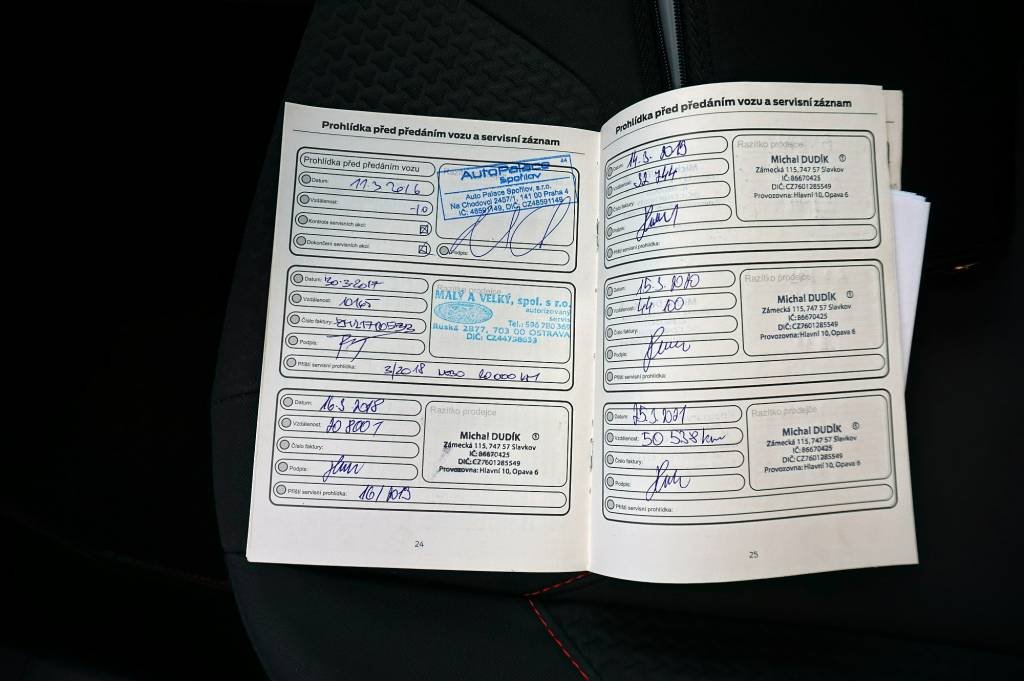 Prohlídka před předáním vozu a servisní záznam
Prohlídka před předáním vozu
Datum: 11.3.2016
Vzdálenost: -10
Kontrola servisních akcí:
Dokončení servisních akcí:
Podpis:
44
AutoPalace
Spořilov
Auto Palace Spořilov, s.r.o.
Na Chodovci 2457/1, 141 00 Praha 4
IČ: 48591149, DIČ: CZ48591149
Datum: 30.3.2017
Vzdálenost:
Číslo faktury:
Podpis:
Příští servisní prohlídka: 3/2018 NEBO 20 000 KM
MALÝ A VELKÝ, spol. s r.o.
autorizovaný
servis
Tel.: 596 780 369
Ruská 2877, 703 00 OSTRAVA
DIČ: CZ44738633
Datum: 16.3 2018
Vzdálenost:
Číslo faktury:
Podpis:
Příští servisní prohlídka: 16/2019
Razítko prodejce
Michal DUDÍK ①
Zámecká 115, 747 57 Slavkov
IČ:86670425
DIČ:CZ7601285549
Provozovna: Hlavní 10, Opava 6
24
Prohlídka před předáním vozu a servisní záznam
Datum: 14.3. 2019
Vzdálenost: 32 744
Číslo faktury:
Podpis:
Příští servisní prohlídka:
Razítko prodejce
Michal DUDÍK ①
Zámecká 115, 747 57 Slavkov
IČ:86670425
DIČ:CZ7601285549
Provozovna: Hlavní 10, Opava 6
Datum: 15.3. 2020
Vzdálenost: 44 100
Číslo faktury:
Podpis:
Příští servisní prohlídka:
Razítko prodejce
Michal DUDÍK ①
Zámecká 115, 747 57 Slavkov
IČ:86670425
DIČ:CZ7601285549
Provozovna: Hlavní 10, Opava 6
Datum: 25.3 2021
Vzdálenost: 50 538 km
Číslo faktury:
Podpis:
Příští servisní prohlídka:
Razítko prodejce
Michal DUDÍK ①
Zámecká 115, 747 57 Slavkov
IČ:86670425
DIČ:CZ7601285549
Provozovna: Hlavní 10, Opava 6
25